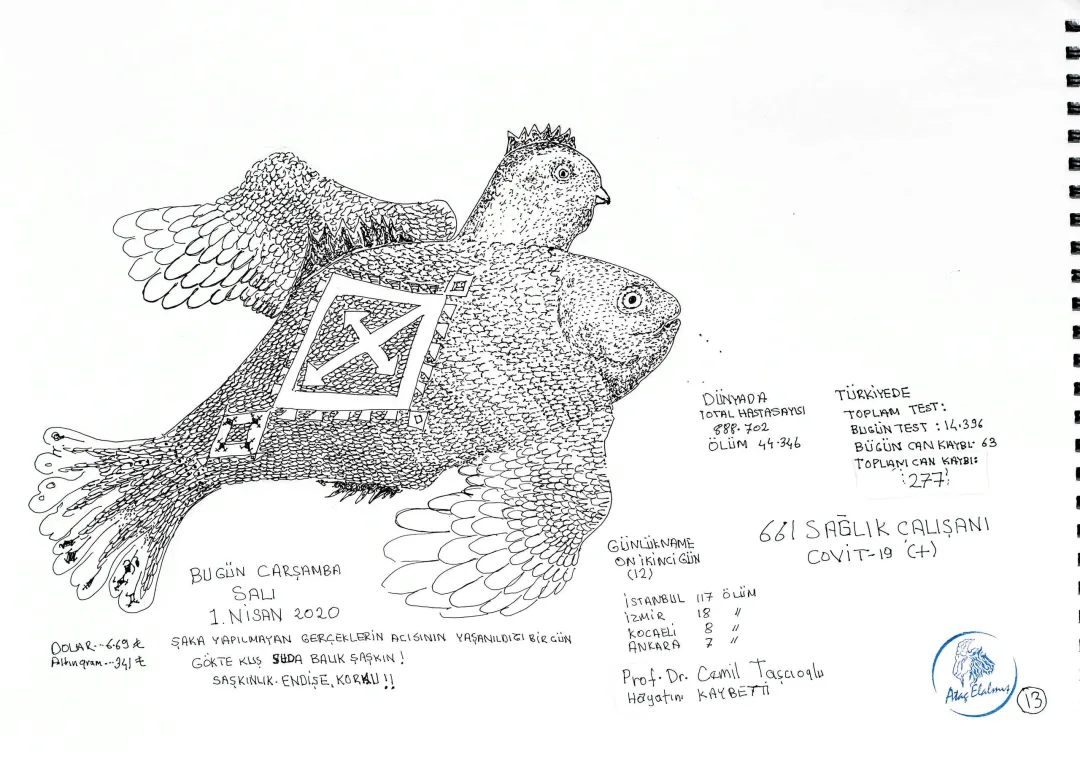 BUGÜN ÇARŞAMBA
SALI
1. NİSAN 2020
DOLAR... 6.69 ₺
Altın gram... 341 ₺
ŞAKA YAPILMAYAN GERÇEKLERİN ACISININ YAŞANILDIĞI BİR GÜN
GÖKTE KUŞ SUDA BALIK ŞAŞKIN!
ŞAŞKINLIK. ENDİŞE, KORKU!!
DÜNYADA
TOTAL HASTA SAYISI
888.702
ÖLÜM 44.346
TÜRKİYEDE
TOPLAM TEST:
BUGÜN TEST : 14.396
BÜGÜN CAN KAYBI. 63
TOPLAM CAN KAYBI:
277
661 SAĞLIK ÇALIŞANI
COVİT-19 (+)
GÜNLÜKNAME
ON İKİNCİ GÜN
(12)
İSTANBUL 117 ÖLÜM
İZMİR 18 "
KOCAELİ 8 "
ANKARA 7 "
Prof. Dr. Cemil Taşcıoglu
Hayatını KAYBETTİ
Ataç Elalmış
13